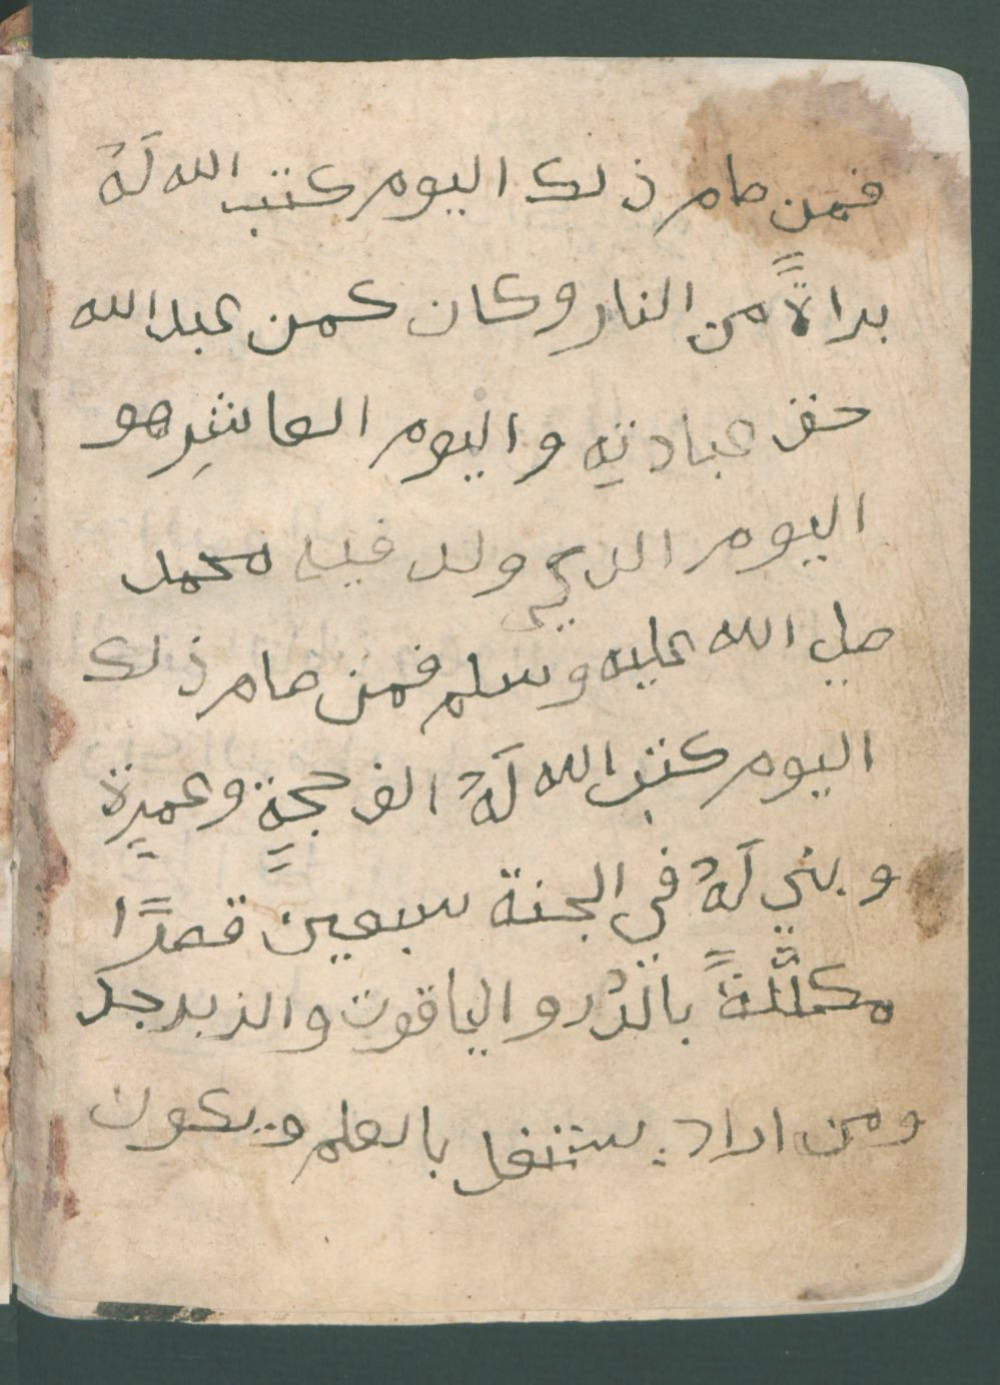 فمن صام ذلك اليوم كتب الله لَهُ
براءلاً من النار وكان كمن عبد الله
حق عبادتِهِ واليوم العاشِر هو
اليوم الذي ولد فيه محمد
صلي الله عليه وسلم فمن صام ذلك
اليوم كتب الله لَهُ الف حجةٍ وعمرةٍ
وبني لَهُ في الجنة سبعين قصرًا
مكلَّلةً بالدُر والياقوت والزبرجد
ومن اراد يشتغل بالعلم ويكون